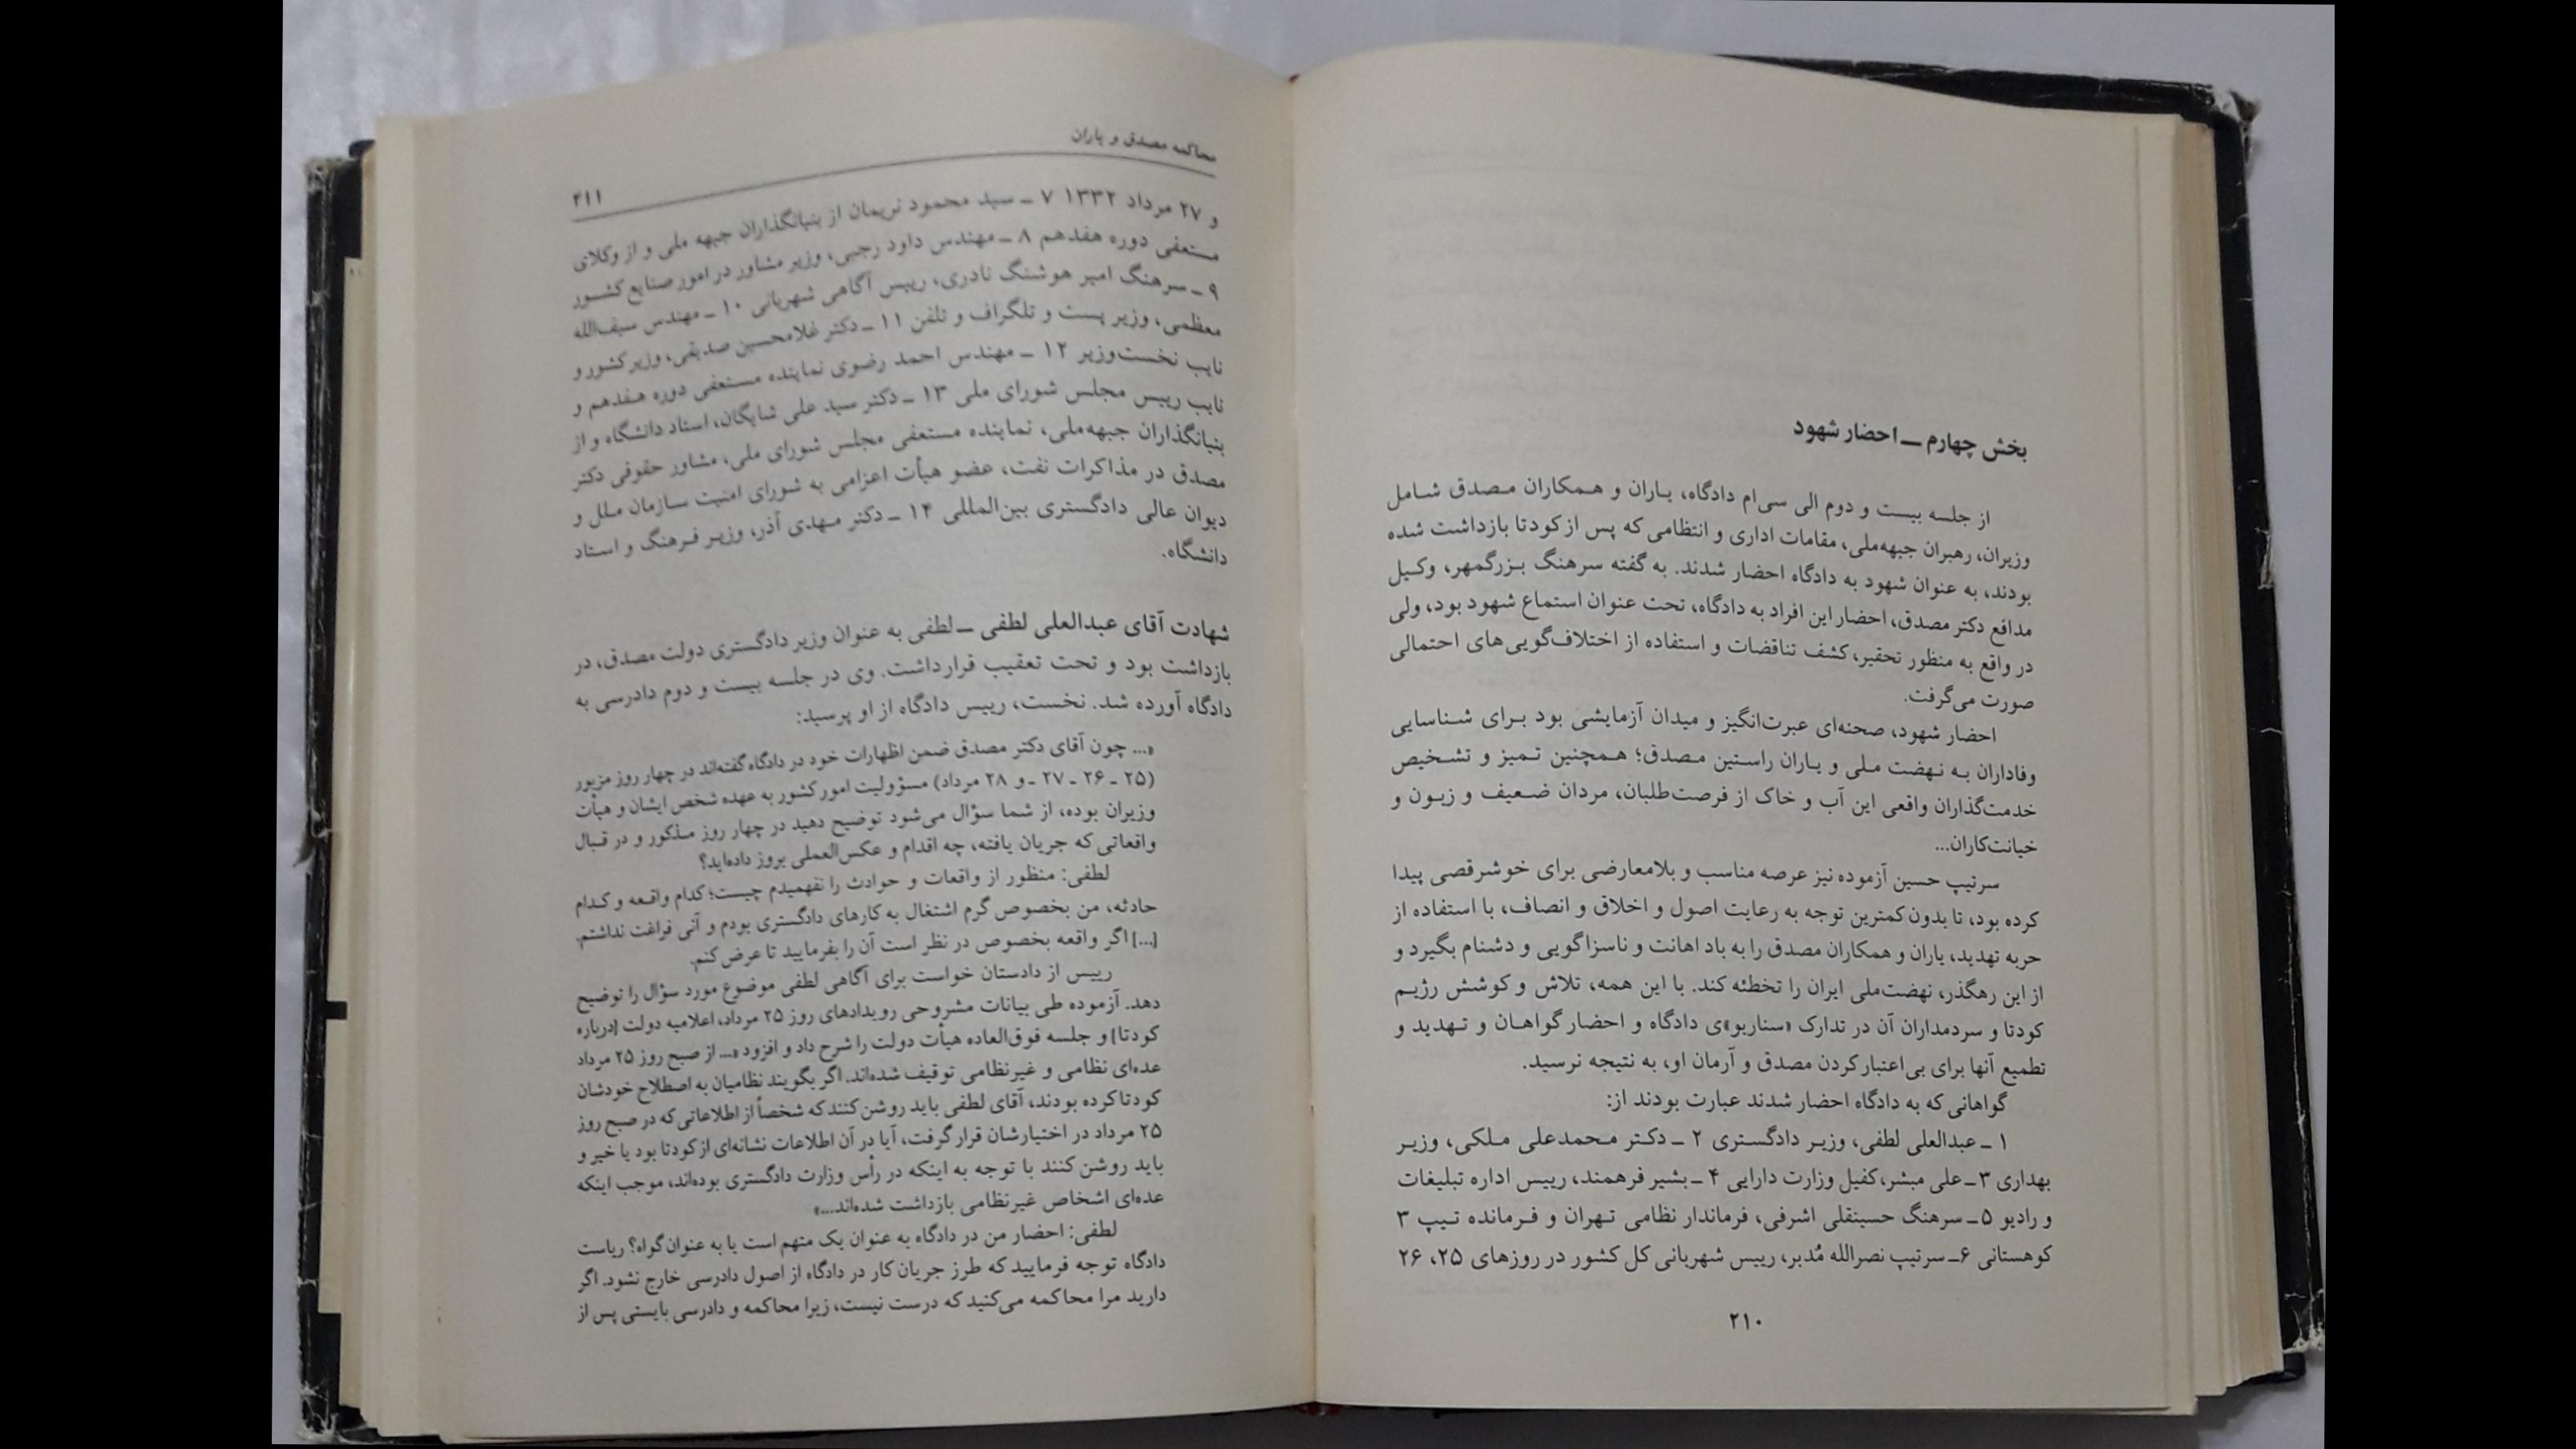 بخش چهارم ـ احضار شهود
از جلسه بیست و دوم الی سی‌ام دادگاه، یاران و همکاران مصدق شامل
وزیران، رهبران جبهه‌ملی، مقامات اداری و انتظامی که پس از کودتا بازداشت شده
بودند، به عنوان شهود به دادگاه احضار شدند. به گفته سرهنگ بزرگمهر، وکیل
مدافع دکتر مصدق، احضار این افراد به دادگاه، تحت عنوان استماع شهود بود، ولی
در واقع به منظور تحقیر، کشف تناقضات و استفاده از اختلاف‌گویی‌های احتمالی
صورت می‌گرفت.
احضار شهود، صحنه‌ای عبرت‌انگیز و میدان آزمایشی بود برای شناسایی
وفاداران به نهضت ملی و یاران راستین مصدق؛ همچنین تمیز و تشخیص
خدمت‌گذاران واقعی این آب و خاک از فرصت‌طلبان، مردان ضعیف و زبون و
خیانت‌کاران...
سرتیپ حسین آزموده نیز عرصه مناسب و بلامعارضی برای خوشرقصی پیدا
کرده بود، تا بدون کمترین توجه به رعایت اصول و اخلاق و انصاف، با استفاده از
حربه تهدید، یاران و همکاران مصدق را به باد اهانت و ناسزاگویی و دشنام بگیرد و
از این رهگذر، نهضت‌ملی ایران را تخطئه کند. با این همه، تلاش و کوشش رژیم
کودتا و سردمداران آن در تدارک «سناریو»ی دادگاه و احضار گواهان و تهدید و
تطمیع آنها برای بی‌اعتبار کردن مصدق و آرمان او، به نتیجه نرسید.
گواهانی که به دادگاه احضار شدند عبارت بودند از:
۱ ـ عبدالعلی لطفی، وزیر دادگستری ۲ ـ دکتر محمدعلی ملکی، وزیر
بهداری ۳ ـ علی مبشر، کفیل وزارت دارایی ۴ ـ بشیر فرهمند، رییس اداره تبلیغات
و رادیو ۵ ـ سرهنگ حسینقلی اشرفی، فرماندار نظامی تهران و فرمانده تیپ ۳
کوهستانی ۶ ـ سرتیپ نصرالله مُدبر، رییس شهربانی کل کشور در روزهای ۲۵، ۲۶
۲۱۰
محاکمه مصدق و یاران
۲۱۱
و ۲۷ مرداد ۱۳۳۲ ۷ ـ سید محمود نریمان از بنیانگذاران جبهه ملی و از وکلای
مستعفی دوره هفدهم ۸ ـ مهندس داود رجبی، وزیر مشاور در امور صنایع کشور
۹ ـ سرهنگ امیر هوشنگ نادری، رییس آگاهی شهربانی ۱۰ ـ مهندس سیف‌الله
معظمی، وزیر پست و تلگراف و تلفن ۱۱ ـ دکتر غلامحسین صدیقی، وزیر کشور و
نایب نخست‌وزیر ۱۲ ـ مهندس احمد رضوی نماینده مستعفی دوره هفدهم و
نایب رییس مجلس شورای ملی ۱۳ ـ دکتر سید علی شایگان، استاد دانشگاه و از
بنیانگذاران جبهه‌ملی، نماینده مستعفی مجلس شورای ملی، مشاور حقوقی دکتر
مصدق در مذاکرات نفت، عضو هیأت اعزامی به شورای امنیت سازمان ملل و
دیوان عالی دادگستری بین‌المللی ۱۴ ـ دکتر مهدی آذر، وزیر فرهنگ و استاد
دانشگاه.
شهادت آقای عبدالعلی لطفی ـ لطفی به عنوان وزیر دادگستری دولت مصدق، در
بازداشت بود و تحت تعقیب قرار داشت. وی در جلسه بیست و دوم دادرسی به
دادگاه آورده شد. نخست، رییس دادگاه از او پرسید:
«... چون آقای دکتر مصدق ضمن اظهارات خود در دادگاه گفته‌اند در چهار روز مزبور
(۲۵ ـ ۲۶ ـ ۲۷ ـ و ۲۸ مرداد) مسؤولیت امور کشور به عهده شخص ایشان و هیأت
وزیران بوده، از شما سؤال می‌شود توضیح دهید در چهار روز مذکور و در قبال
واقعاتی که جریان یافته، چه اقدام و عکس‌العملی بروز داده‌اید؟
لطفی: منظور از واقعات و حوادث را نفهمیدم چیست؛ کدام واقعه و کدام
حادثه، من بخصوص گرم اشتغال به کارهای دادگستری بودم و آنی فراغت نداشتم.
[...] اگر واقعه بخصوص در نظر است آن را بفرمایید تا عرض کنم.
رییس از دادستان خواست برای آگاهی لطفی موضوع مورد سؤال را توضیح
دهد. آزموده طی بیانات مشروحی رویدادهای روز ۲۵ مرداد، اعلامیه دولت [درباره
کودتا] و جلسه فوق‌العاده هیأت دولت را شرح داد و افزود «... از صبح روز ۲۵ مرداد
عده‌ای نظامی و غیرنظامی توقیف شده‌اند. اگر بگویند نظامیان به اصطلاح خودشان
کودتا کرده بودند، آقای لطفی باید روشن کنند که شخصاً از اطلاعاتی که در صبح روز
۲۵ مرداد در اختیارشان قرار گرفت، آیا در آن اطلاعات نشانه‌ای از کودتا بود یا خیر و
باید روشن کنند با توجه به اینکه در رأس وزارت دادگستری بوده‌اند، موجب اینکه
عده‌ای اشخاص غیرنظامی بازداشت شده‌اند...»
لطفی: احضار من در دادگاه به عنوان یک متهم است یا به عنوان گواه؟ ریاست
دادگاه توجه فرمایید که طرز جریان کار در دادگاه از اصول دادرسی خارج نشود. اگر
دارید مرا محاکمه می‌کنید که درست نیست، زیرا محاکمه و دادرسی بایستی پس از